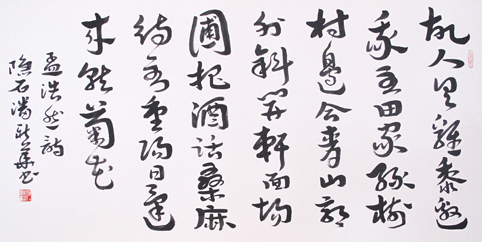 故人具雞黍邀
我至田家綠樹
村邊合青山郭
外斜開軒面場
圃把酒話桑麻
待到重陽日還
來就菊花
孟浩然詩
隱石書